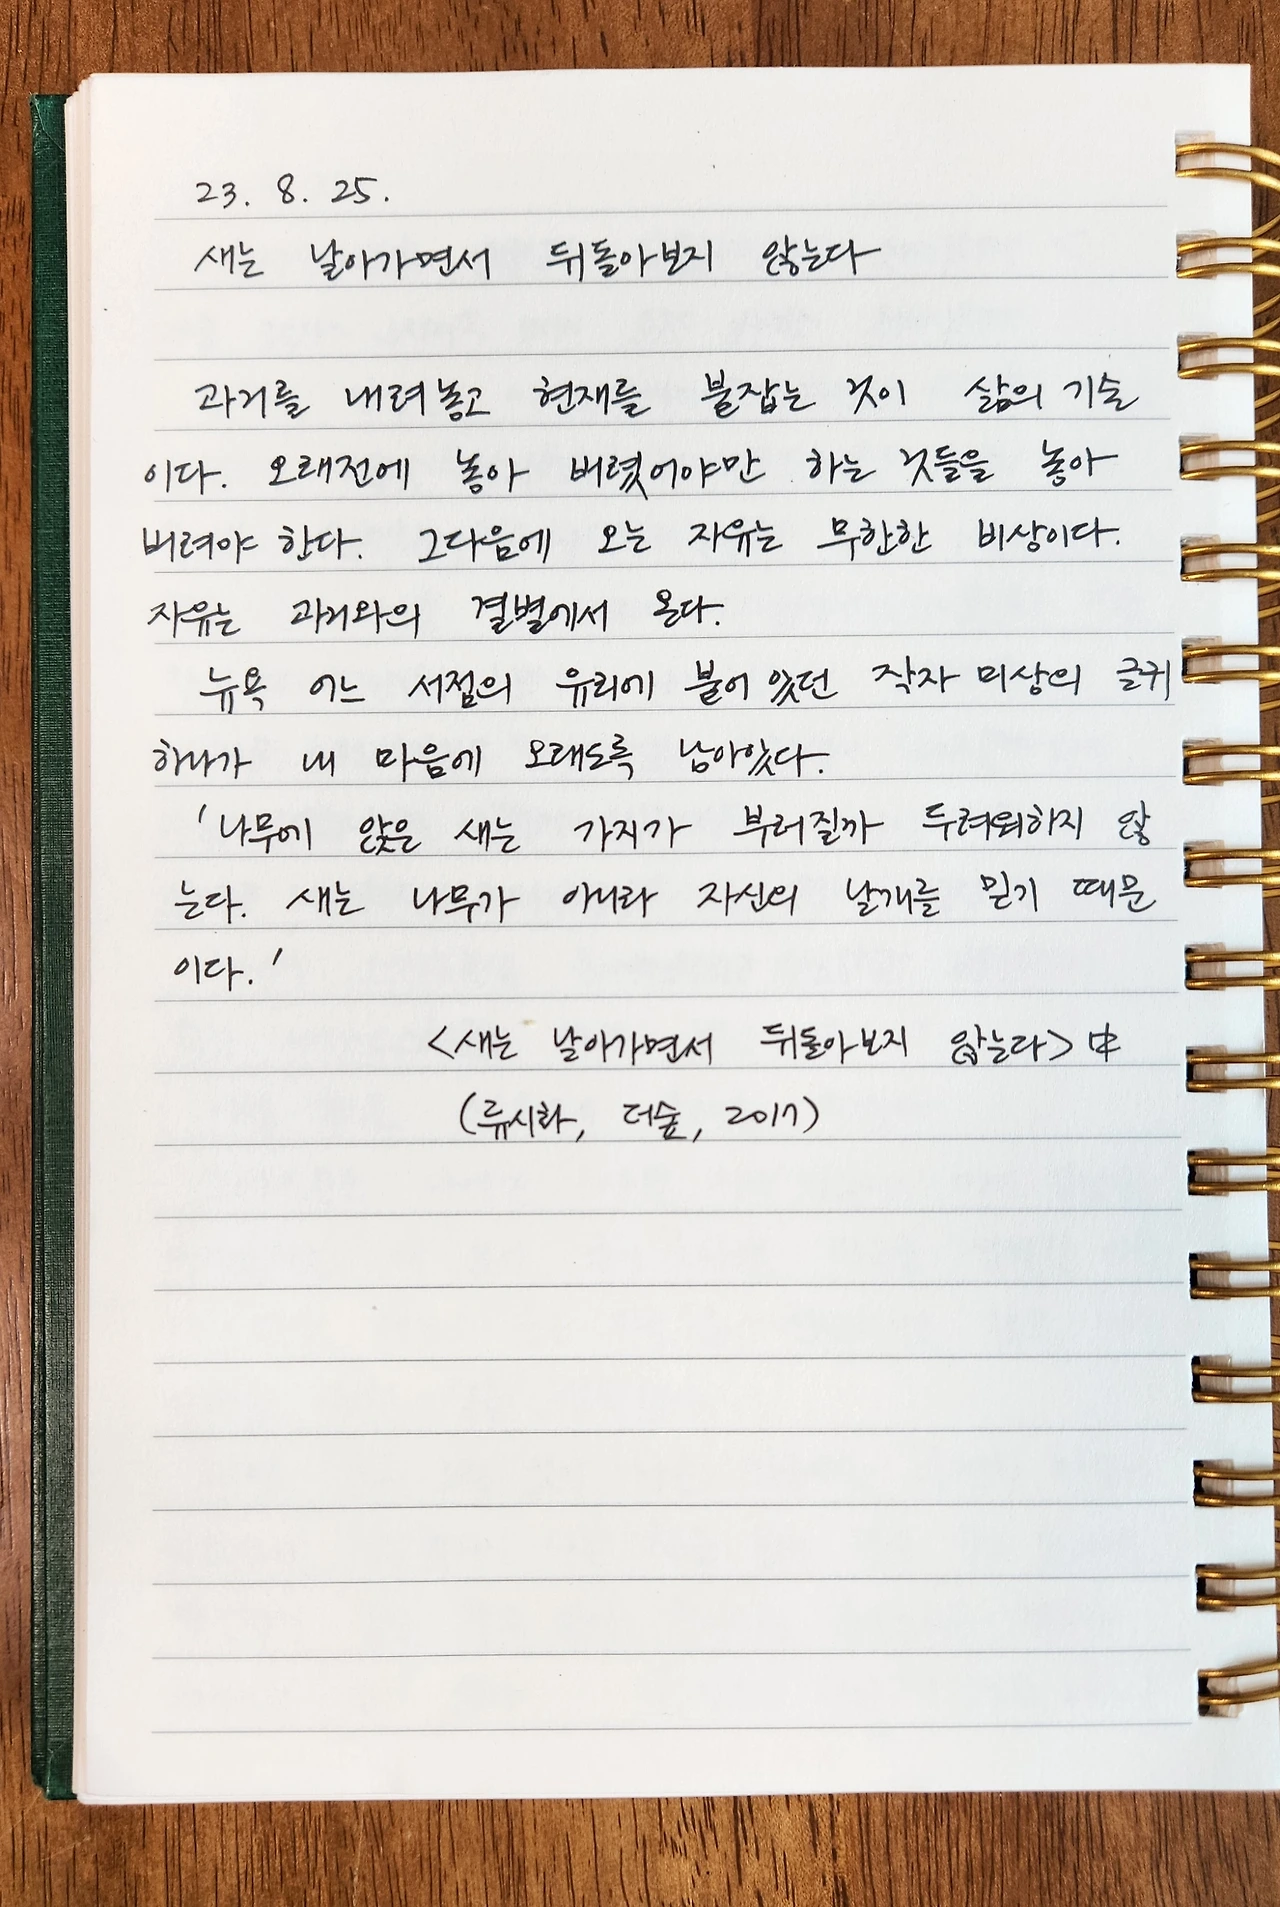 23. 8. 25.
새는 날아가면서 뒤돌아보지 않는다
과거를 내려놓고 현재를 붙잡는 것이 삶의 기술
이다. 오래전에 놓아 버렸어야만 하는 것들을 놓아
버려야 한다. 그다음에 오는 자유는 무한한 비상이다.
자유는 과거와의 결별에서 온다.
뉴욕 어느 서점의 유리에 붙어 있던 작자 미상의 글귀
하나가 내 마음에 오래도록 남아있다.
'나무에 앉은 새는 가지가 부러질까 두려워하지 않
는다. 새는 나무가 아니라 자신의 날개를 믿기 때문
이다.'
<새는 날아가면서 뒤돌아보지 않는다> 中
(류시화, 더숲, 2017)